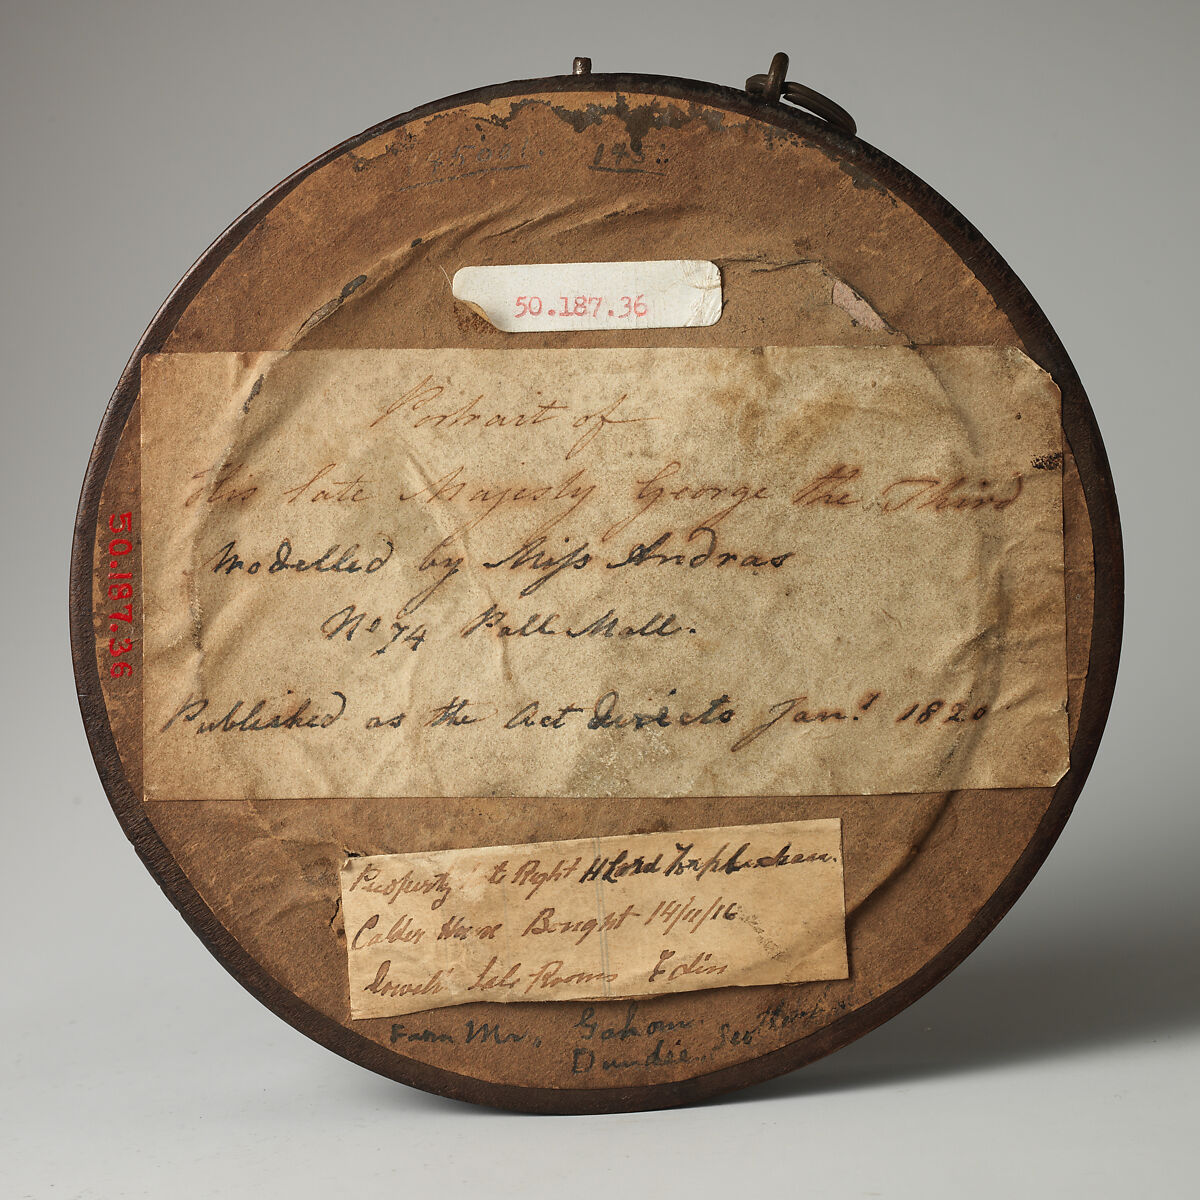 50.187.36
Portrait of
His late Majesty George the Third
Modelled by Miss Andras
No 74 Pall Mall.
Published as the Act directs Jany 1820
50.187.36
Property to Right H Lord Torphichen.
Calder House Bought 14/11/16
Dowell's Sale Rooms Edin
From Mr.,
Dundee